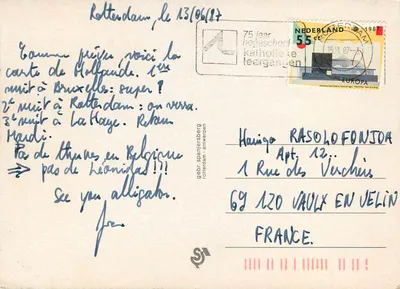 Rotterdam, le 13/06/87
Comme prévu, voici la
carte de Hollande. 1ère
nuit à Bruxelles: super!
2e nuit à Rotterdam: on verra.
3e nuit à La Haye. Retour
Mardi.
Pas de thunes en Belgique
⇒ pas de Léonidas!!!
See you alligator.
75 jaar
katholieke
leergangen
NEDERLAND
55 c
EUROPA
gebr. spanjersberg
rotterdam-antwerpen
RASOLOFONJOA
Apt. 12..
1 Rue des Verchères
69 120 VAULX EN VELIN
FRANCE.